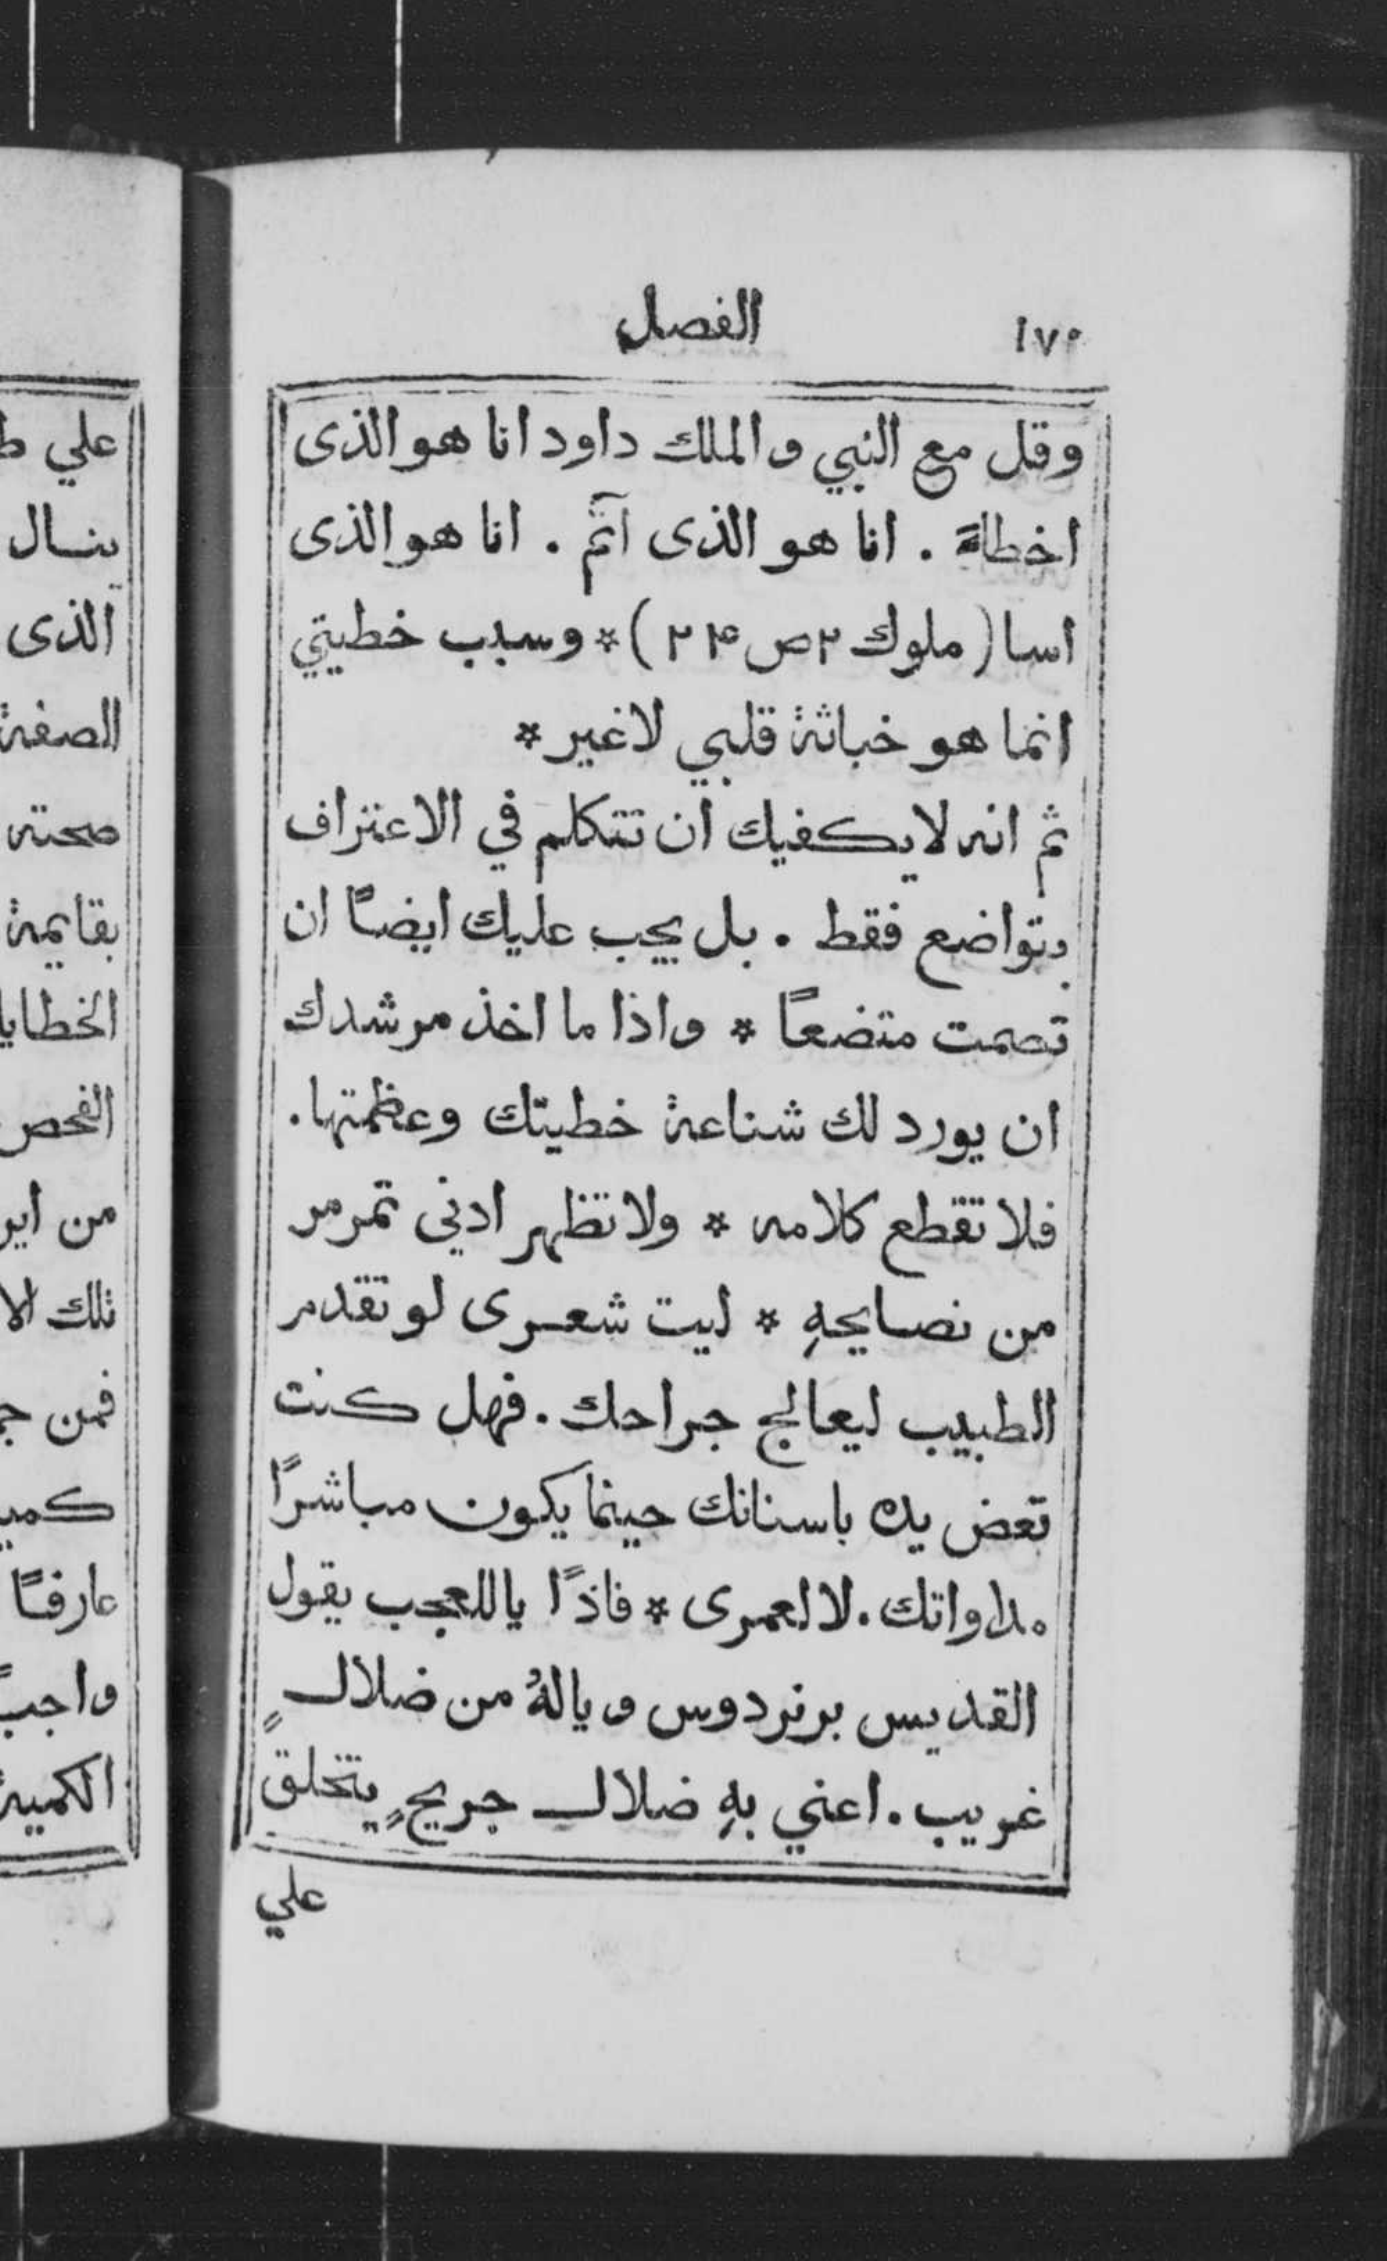 ١٧٠ الفصل
وقل مع النبي والملك داود انا هو الذى
اخطاء . انا هو الذى اثم . انا هو الذى
اسا (ملوك ٢ ص ٢٤) * وسبب خطيتي
انما هو خباثة قلبي لاغير *
ثم انه لا يكفيك ان تتكلم في الاعتراف
بتواضع فقط . بل يجب عليك ايضاً ان
تصمت متضعاً * واذا ما اخذ مرشدك
ان يورد لك شناعة خطيتك وعظمتها .
فلا تقطع كلامه * ولا تظهر ادني تمرمر
من نصايحهِ * ليت شعرى لو تقدم
الطبيب ليعالج جراحك . فهل كنت
تعض يده باسنانك حينما يكون مباشراً
مداواتك . لا لعمرى * فاذاً يا للعجب يقول
القديس برنردوس ويا لهُ من ضلالٍ
غريب . اعني بهِ ضلال جريحٍ يتخلق
علي
علي
ينال
الذى
الصفة
صحته
بقايمة
الخطايا
الفحص
من
تلك
فمن
عارفاً